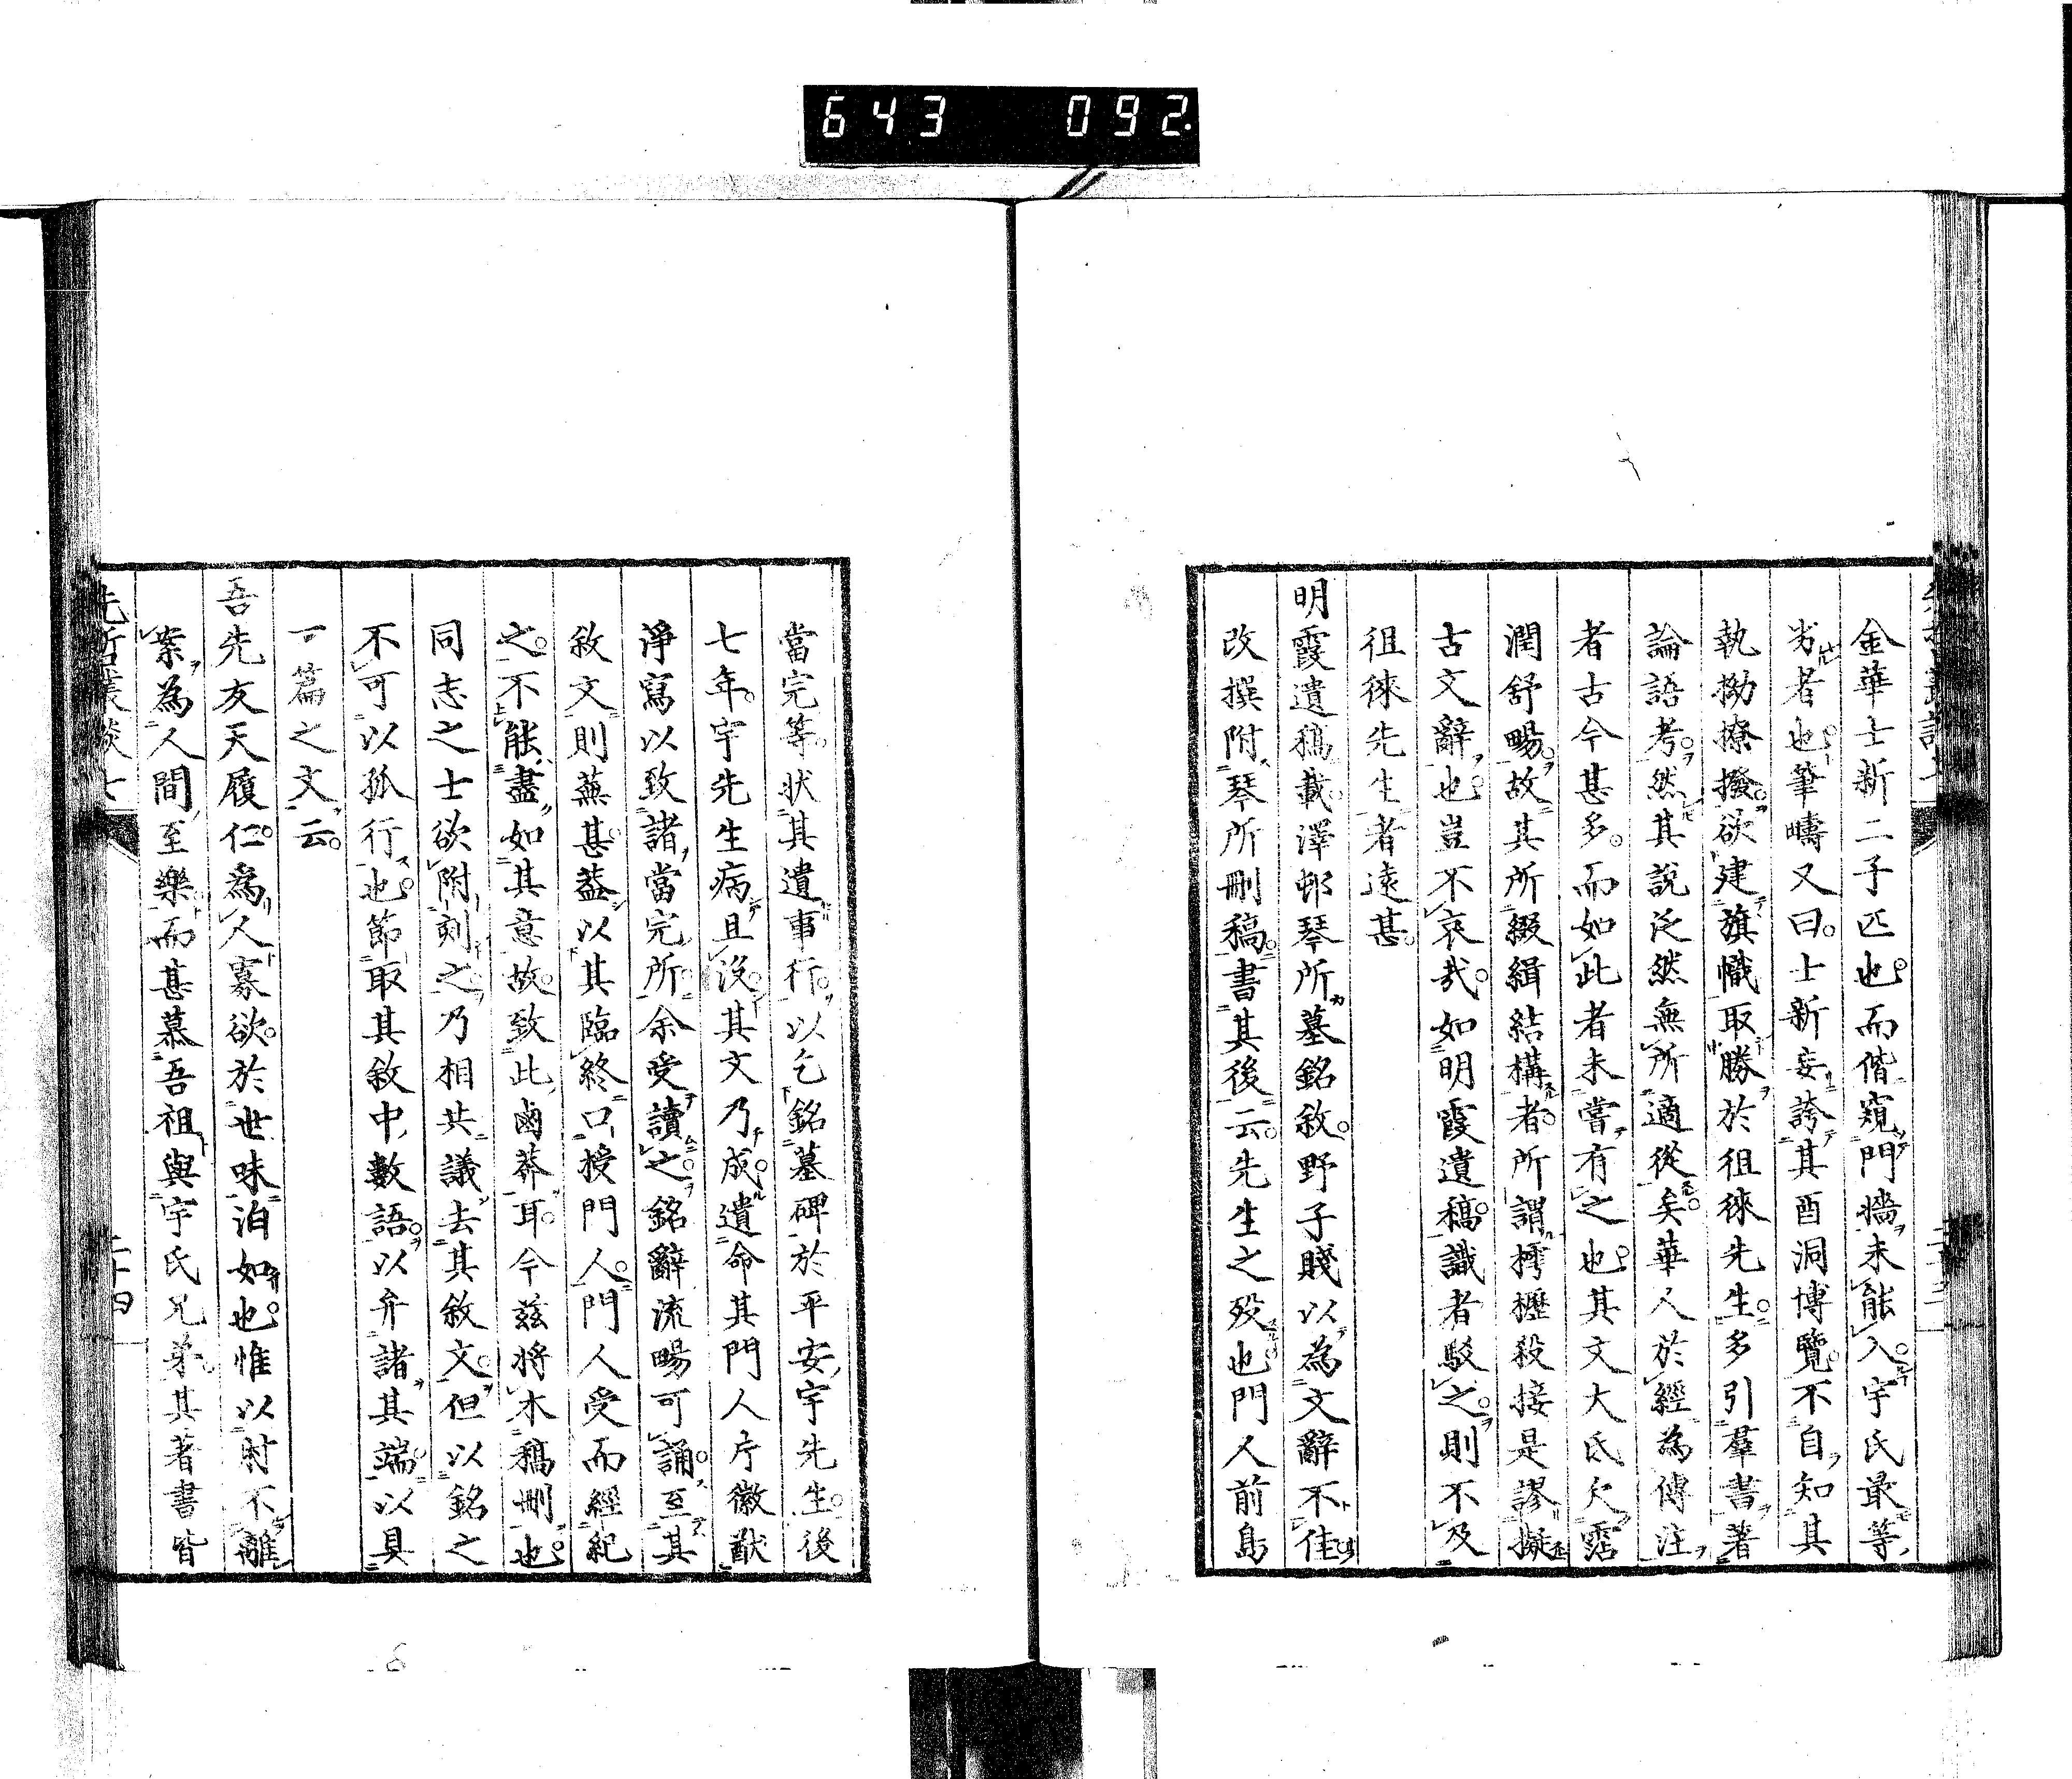 643 092
金華士新二子匹也而偕窺門牆未能入宇氏最等
劣者也筆疇又曰士新妄誇其酉洞博覽不自知其
執拗撩撥欲建旗幟取勝於徂徠先生多引羣書著
論語考然其說泛然無所適從矣華人於經為傳注
者古今甚多而如此者未嘗有之也其文大氐欠霑
潤舒暢故其所綴緝結構者所謂撏撦殺接是謬擬
古文辭也豈不哀哉如明霞遺稿識者駁之則不及
徂徠先生者遠甚
明霞遺稿載澤邨琴所墓銘敘野子賤以為文辭不佳
改撰附琴所刪稿書其後云先生之歿也門人前島
當完等状其遺事行以乞銘墓碑於平安宇先生後
七年宇先生病且沒其文乃成遺命其門人片徽猷
淨寫以致諸當完所余受讀之銘辭流暢可誦至其
敘文則蕪甚葢以其臨終口授門人門人受而經紀
之不能盡如其意故致此鹵莽耳今茲將木稿刪也
同志之士欲附刻之乃相共議去其敘文但以銘之
不可以孤行也節取其敘中數語以弁諸其端以具
一篇之文云
吾先友天履仁為人寡欲於世味泊如也惟以射不離
案為人間至樂而甚慕吾祖與宇氏兄弟其著書皆